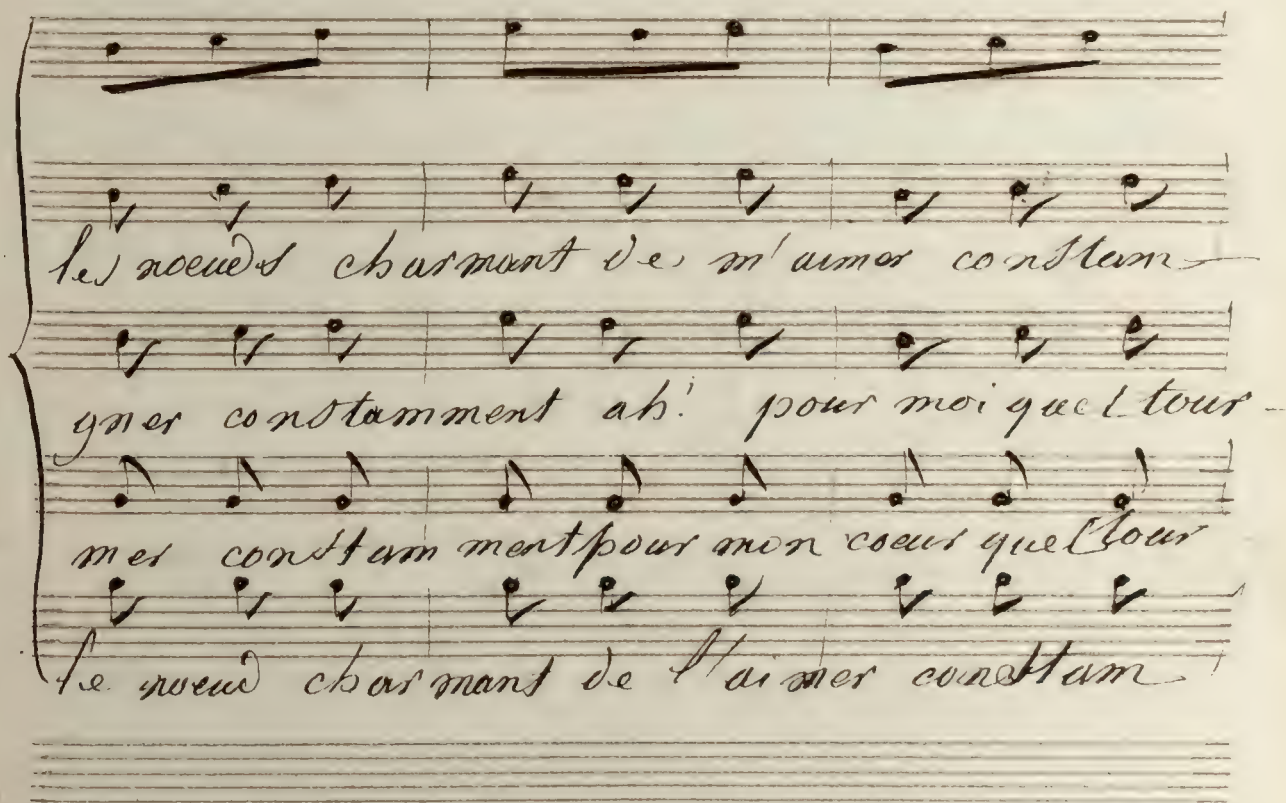 les noeuds charmant de m'aimer constam-
gner constamment ah! pour moi quel tour-
mer constam ment pour mon coeur quel tour
le noeud charmant de l'aimer constam